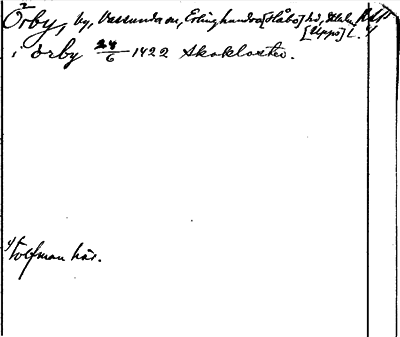 Örby, by, Vassunda sn, Erlinghundra [Håbo] hd, Sthlm
[Upps] l.
i ørby 24/6 1422 Skokloster.
1) Tolfman här.